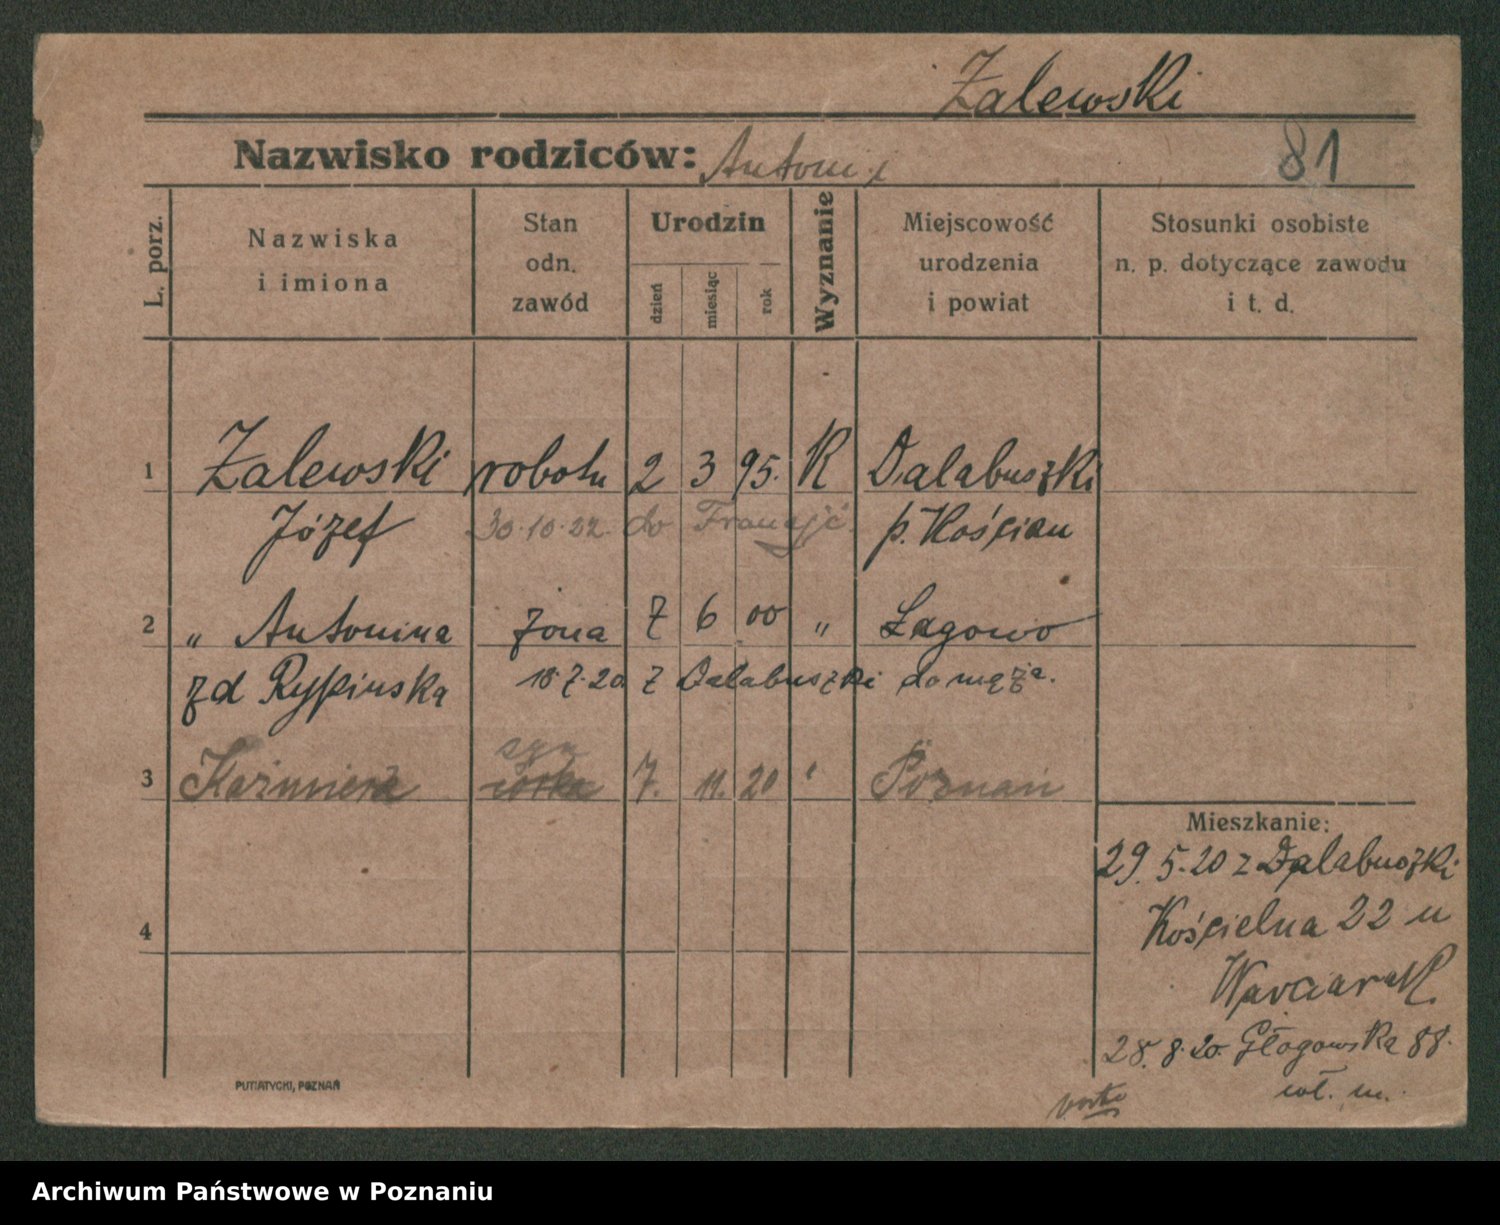 Zalewski
Nazwisko rodziców: Antoni i
81
L. porz.
Nazwiska
i imiona
Stan
odn.
zawód
Urodzin
dzień
miesiąc
rok
Wyznanie
Miejscowość
urodzenia
i powiat
Stosunki osobiste
n. p. dotyczące zawodu
i t. d.
1 Zalewski robotn 2 3 95. K Dalabuszki
Józef 30.10.22. do Francji p. Kościan
2 „ Antonina żona 7 6 00 „ Łagowo
zd Rypinska 18.7.20 z Dalabuszki do męża.
syn
3 Kaźmierz córka 7. 11. 20 " Poznań
Mieszkanie:
29.5.20 z Dalabuszki
4
Kościelna 22 u
28.8.20. Głogowska 88.
wł. m.
PUTIATYCKI, POZNAŃ
Archiwum Państwowe w Poznaniu